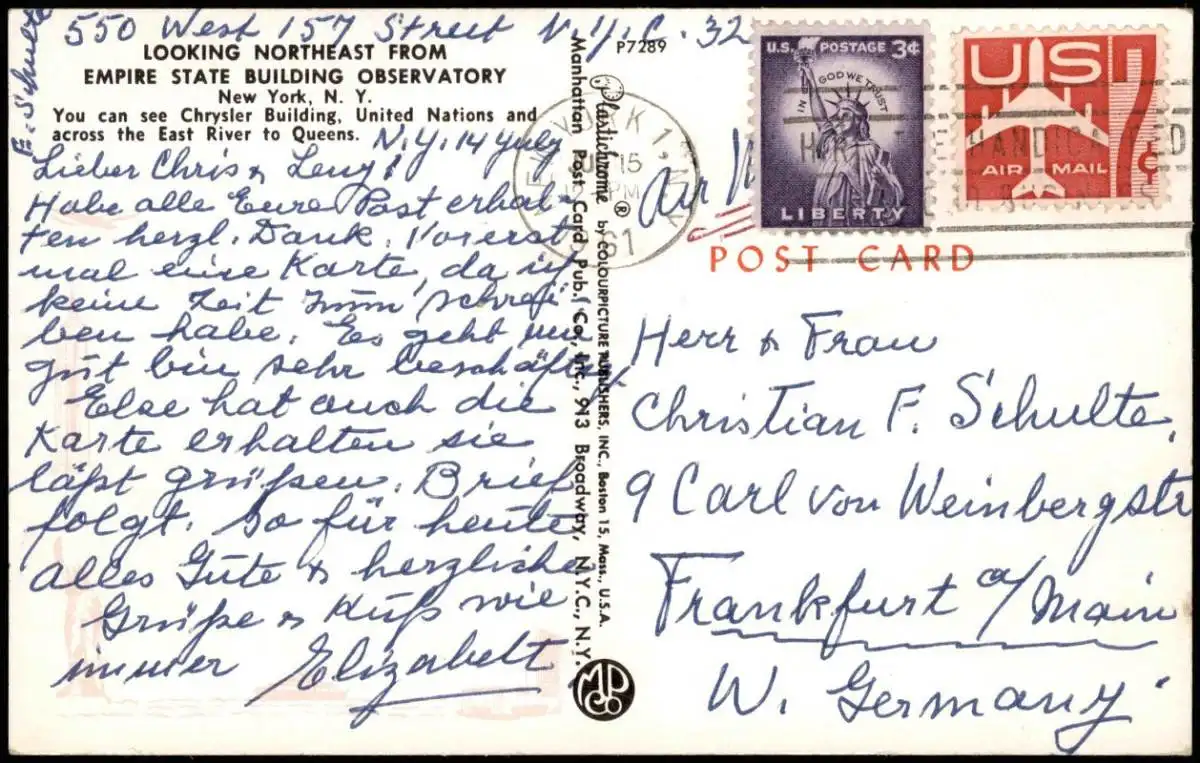 550 West 157 Street N.Y.C. 32
E. Schulte
LOOKING NORTHEAST FROM
EMPIRE STATE BUILDING OBSERVATORY
New York, N. Y.
You can see Chrysler Building, United Nations and
across the East River to Queens.
N.Y. 14 July
Lieber Chris & Leny!
Habe alle Eure Post erhal-
ten herzl. Dank. Vorerst
mal eine Karte, da ich
keine Zeit zum schrei
ben habe. Es geht mir
gut bin sehr beschäftigt
Else hat auch die
Karte erhalten sie
läßt grüßen. Brief
folgt. So für heute
alles Gute & herzliche
Grüße & Kuß wie
immer Elizabelt
P7289
Plastichrome ® by COLOURPICTURE PUBLISHERS, INC., Boston 15, Mass., U.S.A.
Manhattan Post Card Pub. Co., Inc., 913 Broadway, N.Y.C., N.Y.
MPCo
NEW YORK 1, N.Y.
15
PM
61
U.S. POSTAGE 3¢
IN GOD WE TRUST
LIBERTY
US
AIR MAIL
7¢
HANDICAPPED
Air
POST CARD
Herr & Frau
Christian F. Schulte,
9 Carl von Weinbergstr
Frankfurt a/Main
W. Germany.